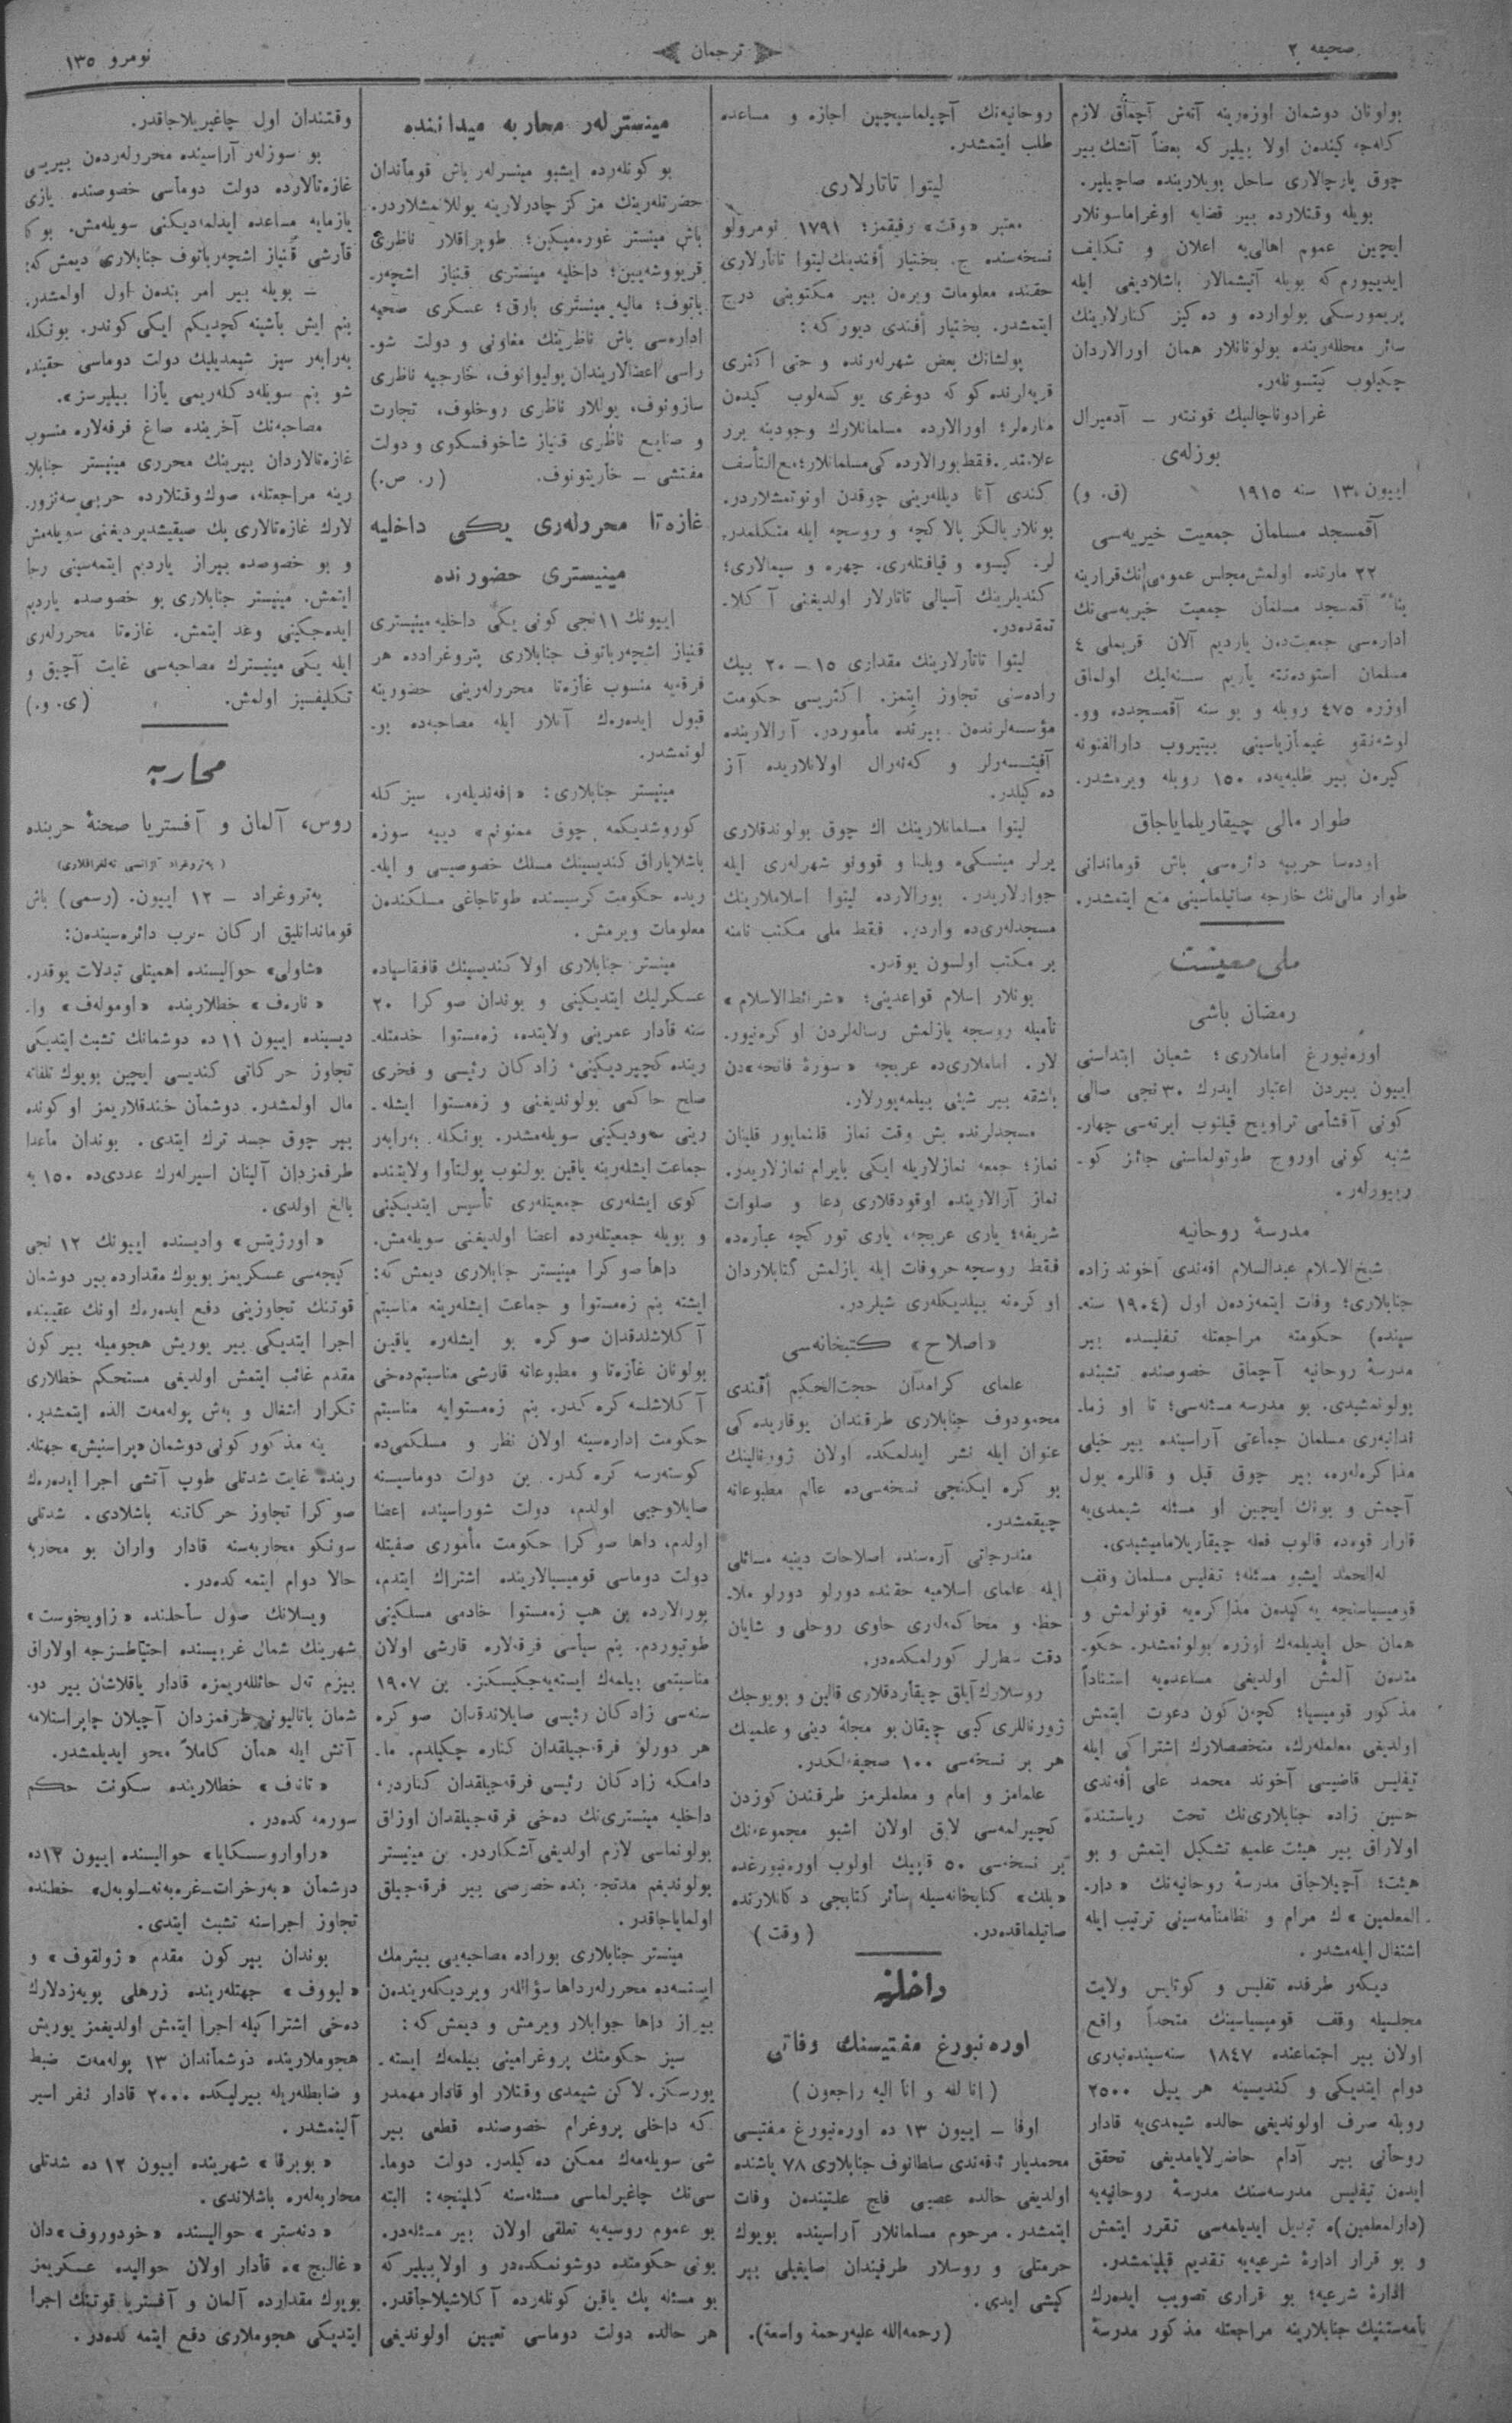 صحیفه ۲
ترجمان
نومرو ۱۳۵
بولونان دوشمان اوزەرینه آتەش آچماق لازم
کلەجە کیندەن اولا بیلیر که بعضاً آتشك بیر
چوق پارچالاری ساحل بویلارینده صاچیلیر.
بویله وقتلارده بیر قضایه اوغراماسونلار
ایچین عموم اهالی‌یه اعلان و تکلیف
ایدییورم که بویله آتیشمالار باشلادیغی ایله
پریمورسکی بولوارده و دەکیز کنارلارینك
سائر محللەرینده بولونانلار همان اورالاردان
چکیلوب کیتسونلەر.
غرادوناچالنیك قونتەر — آدمیرال
بورزلەی
اییون ۱۳ سنه ۱۹۱۵ (ق. و)
آقمسجد مسلمان جمعیت خیریه‌سی
۲۲ مارتده اولمش مجلس عمومی‌نك قرارینه
بناءً آقمسجد مسلمان جمعیت خیریه‌سی‌نك
ادارەسی جمعیت‌دن یاردیم آلان قریملی ٤
مسلمان استودەنته یاریم سنه‌لیك اولماق
اوزره ٤۷۵ روبله و بو سنه آقمسجدده وو.
لوشەنقو غیمنازیاسینی بیتیروب دارالفنونه
کیرەن بیر طلبه‌یه‌ده ۱۵۰ روبله ویرمشدر.
طوار مالی چیقاریلمایاجاق
اودەسا حربیه دائرەسی باش قوماندانی
طوار مالی‌نك خارجه صاتیلماسینی منع ایتمشدر.
ملی معیشت
رمضان باشی
اورەنبورغ اماملاری؛ شعبان ابتداسنی
اییون بیردن اعتبار ایدرك ۳۰ نجی صالی
کونی آقشامی تراویح قیلنوب ایرتەسی چهار.
شنبه کونی اوروج طوتولماسنی جائز کو.
ریبورلەر.
مدرسهٔ روحانیه
شیخ‌الاسلام عبدالسلام افەندی آخوند زاده
جنابلاری؛ وفات ایتمەزدەن اول (۱۹۰٤ سنه.
سینده) حکومته مراجعتله تیفلیسده بیر
مدرسهٔ روحانیه آچماق خصوصنده تشبثده
بولونمشیدی. بو مدرسه مسئله‌سی؛ تا او زما.
ندانبەری مسلمان جماعتی آراسینده بیر خیلی
مذاکرەلەره، بیر چوق قیل و قاللره یول
آچمش و بونك ایچین او مسئله شیمدی‌یه
قارار قوەده قالوب فعله چیقاریلامامیشیدی.
لله‌الحمد ایشبو مسئله؛ تفلیس مسلمان وقف
قومیسیاسنجه یه کیدەن مذاکرەیه قونولمش و
همان حل ایدیلمەك اوزره بولونمشدر. حکو.
متدەن آلمش اولدیغی مساعدەیه استناداً
مذکور قومیسیا؛ کچەن کون دعوت ایتمش
اولدیغی معلملەرك، متخصصلارك اشتراکی ایله
تیفلیس قاضیسی آخوند محمد علی أفەندی
حسین زاده جنابلاری‌نك تحت ریاستنده
اولاراق بیر هیئت علمیه تشکیل ایتمش و بو
هیئت؛ آچیلاجاق مدرسهٔ روحانیه‌نك «دار.
المعلمین»ك مرام و نظامنامه‌سینی ترتیب ایله
اشتغال ایله‌مشدر.
دیکەر طرفده تفلیس و کوتایس ولایت
مجلسیله وقف قومیسیاسینك متحداً واقع
اولان بیر اجتماعنده ۱۸٤۷ سنه‌سیندەنبەری
دوام ایتدیکی و کندیسینه هر ییل ۲۵۰۰
روبله صرف اولوندیغی حالده شیمدی‌یه قادار
روحانی بیر آدام حاضرلایامدیغی تحقق
ایدەن تیفلیس مدرسه‌سنك مدرسهٔ روحانیه‌یه
(دارلمعلمین)ه تبدیل ایدیلمه‌سی تقرر ایتمش
و بو قرار ادارهٔ شرعیه‌یه تقدیم قیلینمشدر.
ادارهٔ شرعیه؛ بو قراری تصویب ایدەرك
نامەستنیك جنابلارینه مراجعتله مذکور مدرسهٔ
روحانیه‌نك آچیلماسیچین اجازه و مساعده
طلب ایتمشدر.
لیتوا تاتارلاری
معتبر «وقت» رفیقمز؛ ۱۷۹۱ نومرولو
نسخه‌سنده ج. بختیار أفندینك لیتوا تاتارلاری
حقنده معلومات ویرەن بیر مکتوبنی درج
ایتمشدر. بختیار أفندی دیور که:
پولشانك بعض شهرلەرنده و حتی اکثری
قریه‌لرنده کوکه دوغری یوکسه‌لوب کیدەن
منارەلر؛ اورالارده مسلمانلارك وجودینه برر
علامتدر. فقط بورالارده‌کی مسلمانلار؛ مع‌التأسف
کندی آنا دیللەرینی چوقدن اونوتمشلاردر.
بونلار یالکز پالاکچه و روسچه ایله متکلمدر.
لر. کیسوه و قیافتلەری، چهره و سیمالاری؛
کندیلرینك آسیالی تاتارلار اولدیغنی آکلا.
تمقدەدر.
لیتوا تاتارلارینك مقداری ۱۵—۲۰ بیك
رادەسنی تجاوز ایتمز. اکثریسی حکومت
مؤسسه‌لرندەن بیرنده مأموردر. آرالارینده
آفیتسەرلر و کەنەرال اولانلاریده آز
دەکیلدر.
لیتوا مسلمانلارینك اك چوق بولوندقلاری
یرلر مینسکی، ویلنا و قوونو شهرلەری ایله
جوارلاریدر. بورالارده لیتوا اسلاملارینك
مسجدلەری‌ده واردر. فقط ملی مکتب نامنه
بر مکتب اولسون یوقدر.
بونلار اسلام قواعدینی؛ «شرائط‌الاسلام»
نامیله روسجه یازلمش رساله‌لردن اوکرەنیور.
لار. اماملاری‌ده عربجه «سورهٔ فاتحه»دن
باشقه بیر شیئی بیلمەیورلار.
مسجدلرنده بش وقت نماز قلنمایور قلینان
نماز؛ جمعه نمازلاریله ایکی بایرام نمازلاریدر.
نماز آرالارینده اوقودقلاری دعا و صلوات
شریفه؛ یاری عربجه، یاری تورکچه عبارەده
فقط روسچه حروفات ایله یازلمش کتابلاردان
اوکرەنه بیلدیکلەری شیلردر.
«اصلاح» کتبخانه‌سی
علمای کرامدان حجت‌الحکیم أفندی
محمودوف جنابلاری طرفندان یوقاریده‌کی
عنوان ایله نشر ایدلمکده اولان ژورنالینك
بو کره ایکنجی نسخه‌سی‌ده عالم مطبوعاته
چیقمشدر.
مندرجاتی آرەسنده اصلاحات دینیه مسائلی
ایله علمای اسلامیه حقنده دورلو دورلو ملا.
حظه و محاکمه‌لەری حاوی روحلی و شایان
دقت سطرلر کورلمکدەدر.
روسلارك آیلق چیقاردقلاری قالین و بویوجك
ژورناللری کبی چیقان بو مجلهٔ دینی و علمینك
هر بر نسخه‌سی ۱۰۰ صحیفه‌لکدر.
علمامز و امام و معلملرمز طرفندن کوزدن
کچیرلمه‌سی لایق اولان اشبو مجموعه‌نك
بر نسخه‌سی ۵۰ قاپیك اولوب اورەنبورغده
«بلك» کتابخانه‌سیله سائر کتابجی دکانلارنده
صاتیلماقدەدر. (وقت)
داخلیه
اورەنبورغ مفتیسنك وفاتی
(انا لله و انا الیه راجعون)
اوفا — اییون ۱۳ ده اورەنبورغ مفتیسی
محمدیار أفەندی سلطانوف جنابلاری ۷۸ یاشنده
اولدیغی حالده عصبی فلج علتیندەن وفات
ایتمشدر. مرحوم مسلمانلار آراسینده بویوك
حرمتلی و روسلار طرفیندان صایغیلی بیر
کیشی ایدی.
(رحمه‌الله علیه رحمة واسعة).
مینسترلەر محاربه میداننده
بو کونلەرده ایشبو مینسرلەر باش قوماندان
حضرتلەرینك مرکز چادرلارینه یوللانمشلاردر.
باش مینستر غورەمیکین؛ طوپراقلار ناظری
قریووشەیین؛ داخلیه مینستری قنیاز اشچەر.
باتوف؛ مالیه مینستری بارق؛ عسکری صحیه
ادارەسی باش ناظرینك معاونی و دولت شو.
راسی اعضالاریندان پولیوانوف، خارجیه ناظری
سازونوف، یوللار ناظری روخلوف، تجارت
و صنایع ناظری قنیاز شاخوفسکوی و دولت
مفتشی — خاریتونوف. (ر. ص.)
غازەتا محررلەری یکی داخلیه
مینیستری حضورنده
اییونك ۱۱ نجی کونی یکی داخلیه مینیستری
قنیاز اشچەرباتوف جنابلاری پتروغرادده هر
فرقه‌یه منسوب غازەتا محررلەرینی حضورینه
قبول ایدەرەك آنلار ایله مصاحبه‌ده بو.
لونمشدر.
مینیستر جنابلاری: «افەندیلەر، سیز کله
کوروشدیکمه چوق ممنونم» دییه سوزه
باشلایاراق کندیسینك مسلك خصوصیسی و ایله.
ریده حکومت کرسیسنده طوتاجاغی مسلکندەن
معلومات ویرمش.
مینستر جنابلاری اولا کندیسینك قافقاسیاده
عسکرلیك ایتدیکینی و بوندان صوکرا ۲۰
سنه قادار عمرینی ولایتده، زەمستوا خدمتله.
رینده کچیردیکینی، زادکان رئیسی و فخری
صلح حاکمی بولوندیغنی و زەمستوا ایشله.
رینی سەودیکینی سویله‌مشدر. بونکله بەرابەر
جماعت ایشلەرینه یاقین بولنوب پولتاوا ولایتنده
کوی ایشلەری جمعیتلەری تأسیس ایتدیکینی
و بویله جمعیتلەرده اعضا اولدیغنی سویله‌مش.
داها صوکرا مینیستر جنابلاری دیمش که:
ایشته بنم زەمستوا و جماعت ایشلەرینه مناسبتم
آکلاشلدقدان صوکره بو ایشلەره یاقین
بولونان غازەتا و مطبوعاته قارشی مناسبتم‌دەخی
آکلاشلسه کرەکدر. بنم زەمستوایه مناسبتم
حکومت ادارەسینه اولان نظر و مسلکمی‌ده
کوستەرسه کرەکدر. بن دولت دوماسیسنه
صایلاوجیی اولدم، دولت شوراسینده اعضا
اولدم، داها صوکرا حکومت مأموری صفتیله
دولت دوماسی قومیسیالارینده اشتراك ایتدم،
بورالارده بن هپ زەمستوا خادمی مسلکینی
طوتیوردم. بنم سیاسی فرقه‌لاره قارشی اولان
مناسبتمی بیلمەك ایستەیه‌جکیسکز. بن ۱۹۰۷
سنه‌سی زادکان رئیسی صایلاندقدان صوکره
هر دورلو فرقه‌جیلقدان کناره چکیلدم. ما.
دامکه زادکان رئیسی فرقه‌جیلقدان کناردر،
داخلیه مینستری‌نك دەخی فرقه‌جیلقدان اوزاق
بولونماسی لازم اولدیغی آشکاردر. بن مینیستر
بولوندیغم مدتجه بنده خصوصی بیر فرقه‌جیلق
اولمایاجاقدر.
مینستر جنابلاری بوراده مصاحبه‌یی بیترمك
ایستسه‌ده محررلەر داها سؤاللەر ویردیکلەریندەن
بیراز داها جوابلار ویرمش و دیمش که:
سیز حکومتك پروغرامینی بیلمەك ایسته.
یورسکز. لاکن شیمدی وقتلار او قادار مهمدر
که داخلی پروغرام خصوصنده قطعی بیر
شی سویله‌مەك ممکن دەکیلدر. دولت دوما.
سی‌نك چاغیرلماسی مسئله‌سنه کلینجه: البته
بو عموم روسیه‌یه تعلقی اولان بیر مسئله‌در.
بونی حکومتده دوشونمکدەدر و اولا بیلیر که
بو مسئله پك یاقین کونلەرده آکلاشیلاجاقدر.
هر حالده دولت دوماسی تعیین اولوندیغی
وقتندان اول چاغیریلاجاقدر.
بو سوزلەر آراسینده محررلەردەن بیریسی
غازەتالارده دولت دوماسی خصوصنده یازی
یازمایه مساعده ایدلمەدیکنی سویله‌مش. بوکا
قارشی قنیاز اشچەرباتوف جنابلاری دیمش که:
— بویله بیر امر بندەن اول اولمشدر.
بنم ایش باشینه کچدیکم ایکی کوندر. بونکله
بەرابەر سیز شیمدیلیك دولت دوماسی حقینده
شو بنم سویلەدکلەریمی یازا بیلیرسز».
مصاحبه‌نك آخرینده صاغ فرقه‌لاره منسوب
غازەتالاردان بیرینك محرری مینیستر جنابلا.
رینه مراجعتله، صوك وقتلارده حربی سەنزور.
لارك غازەتالاری پك صیقیشدیردیغنی سویله‌مش
و بو خصوصده بیراز یاردیم ایتمه‌سینی رجا
ایتمش. مینیستر جنابلاری بو خصوصده یاردیم
ایدەجکینی وعد ایتمش. غازەتا محررلەری
ایله یکی مینیسترك مصاحبه‌سی غایت آچیق و
تکلیفسیز اولمش. (ی. و.)
محاربه
روس، آلمان و آفستریا صحنهٔ حربنده
(پەتروغراد آژانسی تەلغرافلاری)
پەتروغراد — ۱۲ اییون. (رسمی) باش
قوماندانلیق ارکان حرب دائرەسیندەن:
«شاولی» حوالیسنده اهمیتلی تبدلات یوقدر.
«نارەف» خطلارینده «اومولەف» وا.
دیسینده اییون ۱۱ ده دوشمانك تشبث ایتدیکی
تجاوز حرکاتی کندیسی ایچین بویوك تلفاته
مال اولمشدر. دوشمان خندقلاریمز اوکونده
بیر چوق جسد ترك ایتدی. بوندان ماعدا
طرفمزدان آلینان اسیرلەرك عددی‌ده ۱۵۰ یه
بالغ اولدی.
«اورژیتس» وادیسنده اییونك ۱۲ نجی
کیجه‌سی عسکریمز بویوك مقدارده بیر دوشمان
قوتنك تجاوزینی دفع ایدەرەك اونك عقیبنده
اجرا ایتدیکی بیر یوریش هجومیله بیر کون
مقدم غائب ایتمش اولدیغی مستحکم خطلاری
تکرار اشغال و بەش پولەمەت الده ایتمشدر.
ینه مذکور کونی دوشمان «پراسنیش» جهتله.
رینده غایت شدتلی طوپ آتشی اجرا ایدەرەك
صوکرا تجاوز حرکاتنه باشلادی. شدتلی
سونکو محاربه‌سنه قادار واران بو محاربه
حالا دوام ایتمەکدەدر.
ویسلانك صول ساحلنده «زاویخوست»
شهرینك شمال غربیسنده احتیاطسزجه اولاراق
بیزم تەل حائللەریمزه قادار یاقلاشان بیر دو.
شمان باتالیونی طرفمزدان آچیلان چاپراستلامه
آتش ایله همان کاملاً محو ایدیلمشدر.
«تانەف» خطلارینده سکونت حکم
سورمەکدەدر.
«راواروسسکایا» حوالیسنده اییون ۱۲ ده
دوشمان «بەرخرات—غرەبەنه—لوبەل» خطنده
تجاوز اجراسنه تشبث ایتدی.
بوندان بیر کون مقدم «ژولقوف» و
«لیووف» جهتلەرینده زرهلی پویەزدلارك
دەخی اشتراکیله اجرا ایتمش اولدیغمز یوریش
هجوملارینده دوشماندان ۱۳ پولەمەت ضبط
و ضابطلەریله بیرلیکده ۲۰۰۰ قادار نفر اسیر
آلینمشدر.
«بوبرقا» شهرینده اییون ۱۲ ده شدتلی
محاربه‌لەره باشلاندی.
«دنەستر» حوالیسنده «خودوروف»دان
«غالیچ»ه قادار اولان حوالیده عسکریمز
بویوك مقدارده آلمان و آفستریا قوتنك اجرا
ایتدیکی هجوملاری دفع ایتمەکدەدر.